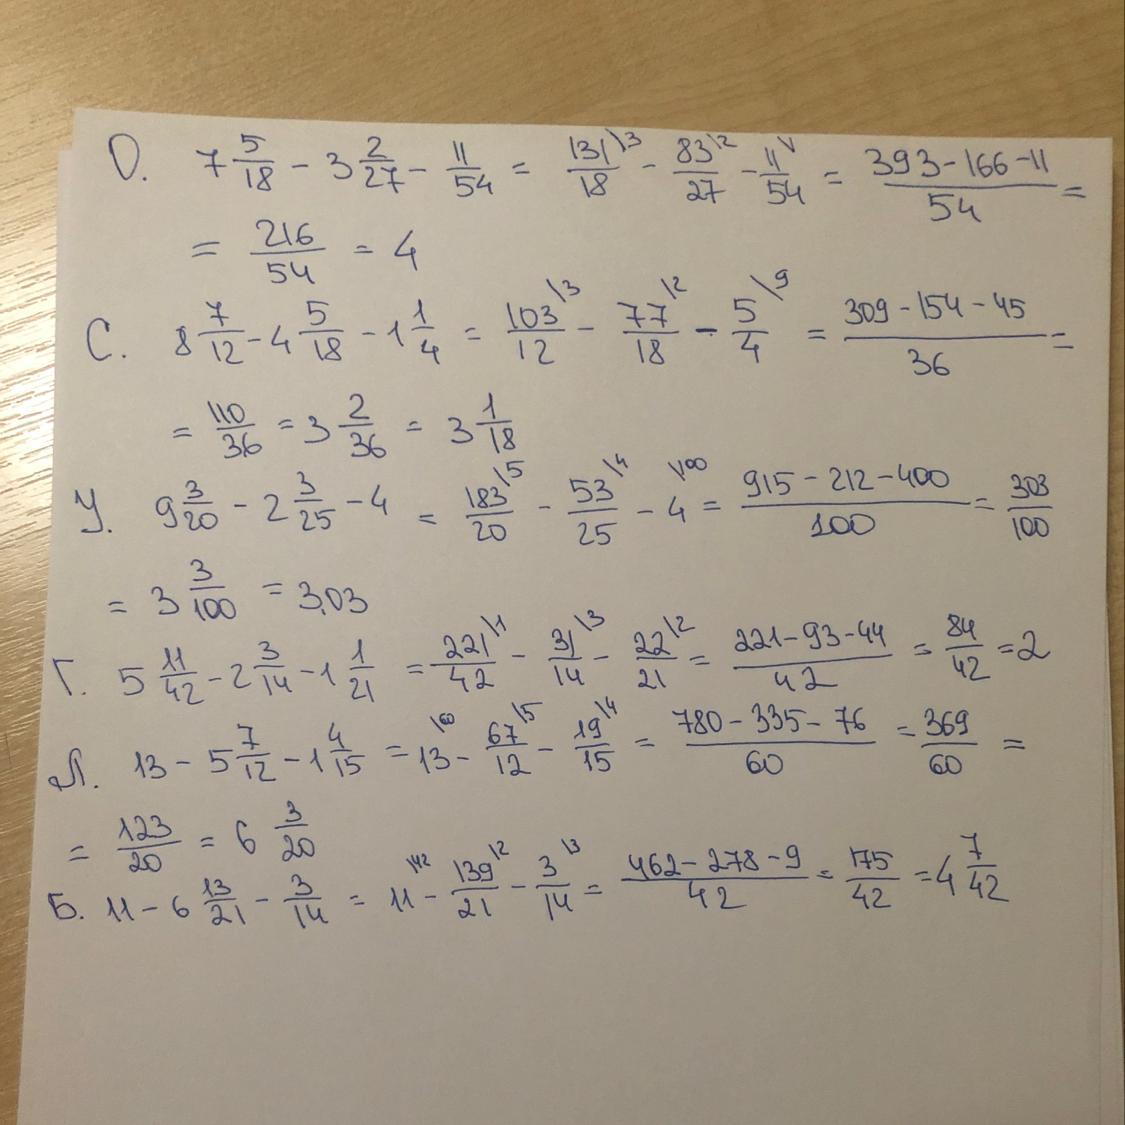 О. 7 5/18 - 3 2/27 - 11/54 = 131\3/18 - 83\2/27 - 11\1/54 = (393-166-11)/54 =
= 216/54 = 4
С. 8 7/12 - 4 5/18 - 1 1/4 = 103\3/12 - 77\2/18 - 5\9/4 = (309-154-45)/36 =
= 110/36 = 3 2/36 = 3 1/18
У. 9 3/20 - 2 3/25 - 4 = 183\5/20 - 53\4/25 - 4\100 = (915-212-400)/100 = 303/100
= 3 3/100 = 3,03
Г. 5 11/42 - 2 3/14 - 1 1/21 = 221\1/42 - 31\3/14 - 22\2/21 = (221-93-44)/42 = 84/42 = 2
Л. 13 - 5 7/12 - 1 4/15 = 13\60 - 67\5/12 - 19\4/15 = (780-335-76)/60 = 369/60 =
= 123/20 = 6 3/20
Б. 11 - 6 13/21 - 3/14 = 11\42 - 139\2/21 - 3\3/14 = (462-278-9)/42 = 175/42 = 4 7/42